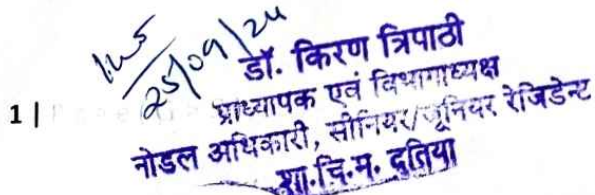 25/09/24
डॉ. किरण त्रिपाठी
प्राध्यापक एवं विभागाध्यक्ष
1 |
नोडल अधिकारी, सीनियर/जूनियर रेजिडेन्ट
शा.चि.म. दतिया